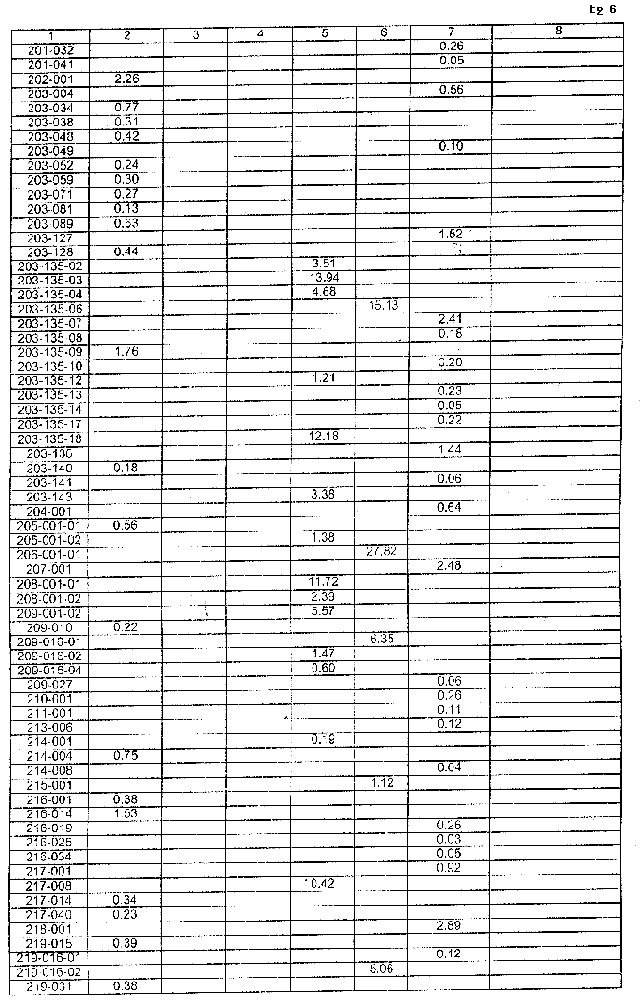 tg 6
1 2 3 4 5 6 7 8
201-032 0.26
201-041 0.05
202-001 2.26
203-004 0.56
203-034 0.77
203-038 0.31
203-048 0.42
203-049 0.10
203-052 0.24
203-059 0.30
203-071 0.27
203-081 0.13
203-089 0.53
203-127 1.52
203-128 0.44
203-135-02 3.51
203-135-03 13.94
203-135-04 4.68
203-135-06 15.13
203-135-07 2.41
203-135-08 0.18
203-135-09 1.76
203-135-10 0.20
203-135-12 1.21
203-135-13 0.23
203-135-14 0.05
203-135-17 0.22
203-135-18 12.18
203-136 1.44
203-140 0.18
203-141 0.06
203-143 3.36
204-001 0.64
205-001-01 0.56
205-001-02 1.38
206-001-01 27.82
207-001 2.48
208-001-01 11.72
208-001-02 2.39
209-001-02 5.57
209-010 0.22
209-016-01 6.35
209-016-02 1.47
209-016-04 0.60
209-027 0.06
210-001 0.26
211-001 0.11
213-006 0.12
214-001 0.19
214-004 0.75
214-008 0.04
215-001 1.12
216-001 0.38
216-014 1.53
216-019 0.26
216-028 0.03
216-034 0.05
217-001 0.92
217-008 10.42
217-014 0.34
217-040 0.23
218-001 2.89
219-015 0.39
219-016-01 0.12
219-016-02 5.06
219-031 0.38